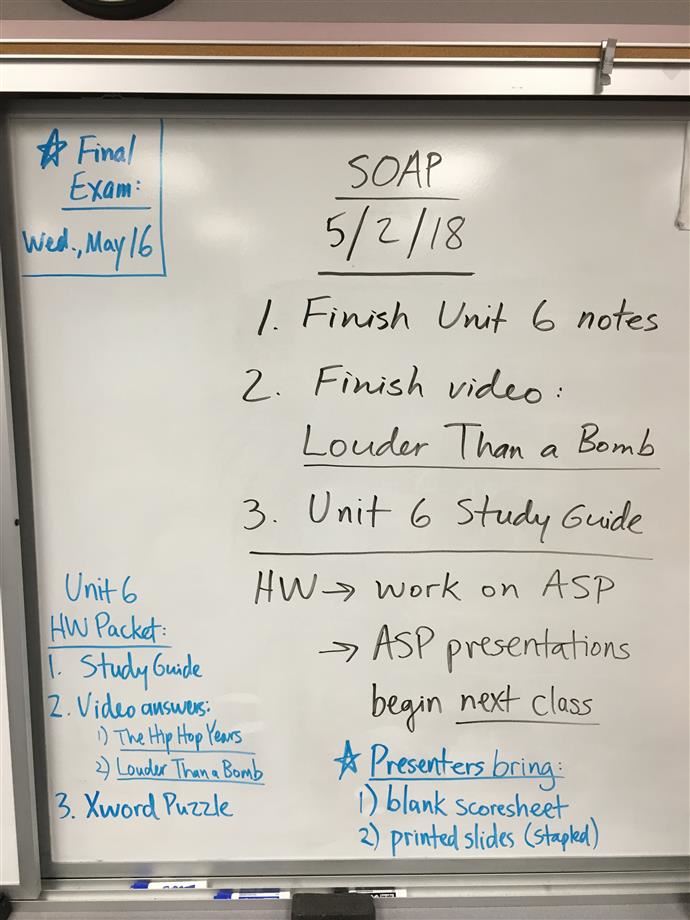 ☆ Final
Exam:
Wed., May 16
SOAP
5/2/18
1. Finish Unit 6 notes
2. Finish video:
Louder Than a Bomb
3. Unit 6 Study Guide
HW → work on ASP
→ ASP presentations
begin next class
☆ Presenters bring:
1) blank scoresheet
2) printed slides (stapled)
Unit 6
HW Packet:
1. Study Guide
2. Video answers:
1) The Hip Hop Years
2) Louder Than a Bomb
3. Xword Puzzle